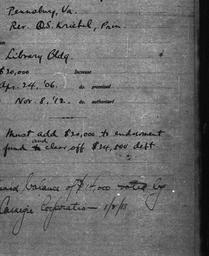 Pennsburg, Va.
Rev. O.S. Kriebel, Prin.
Library Bldg.
$20,000 Increase
Apr. 24, '06. do promised
Nov. 8, '12. do authorized
Must add $20,000 to endowment
fund and clear off $24,500 debt
balance of $14000 voted by
Carnegie Corporation - 1/8/18